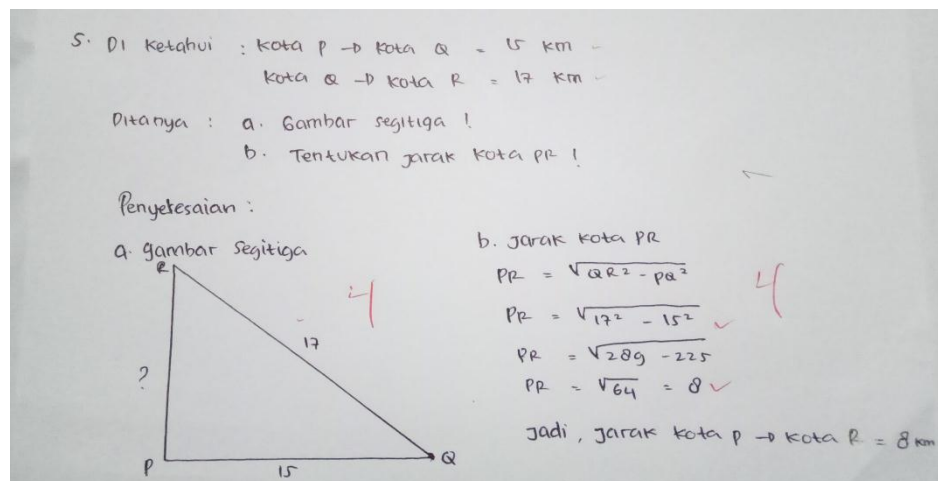 5. Di Ketahui : Kota P → Kota Q = 15 km
Kota Q → Kota R = 17 km
Ditanya : a. Gambar segitiga !
b. Tentukan jarak kota PR !
Penyelesaian :
a. gambar segitiga
R
17
?
P
15
Q
4
b. Jarak kota PR
PR = √QR² - PQ²
PR = √17² - 15²
PR = √289 - 225
PR = √64 = 8
Jadi, jarak kota P → kota R = 8 km
4